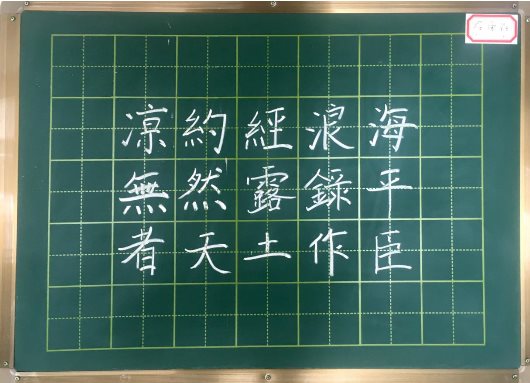 凉約經浪海
無然露録平
者天土作臣